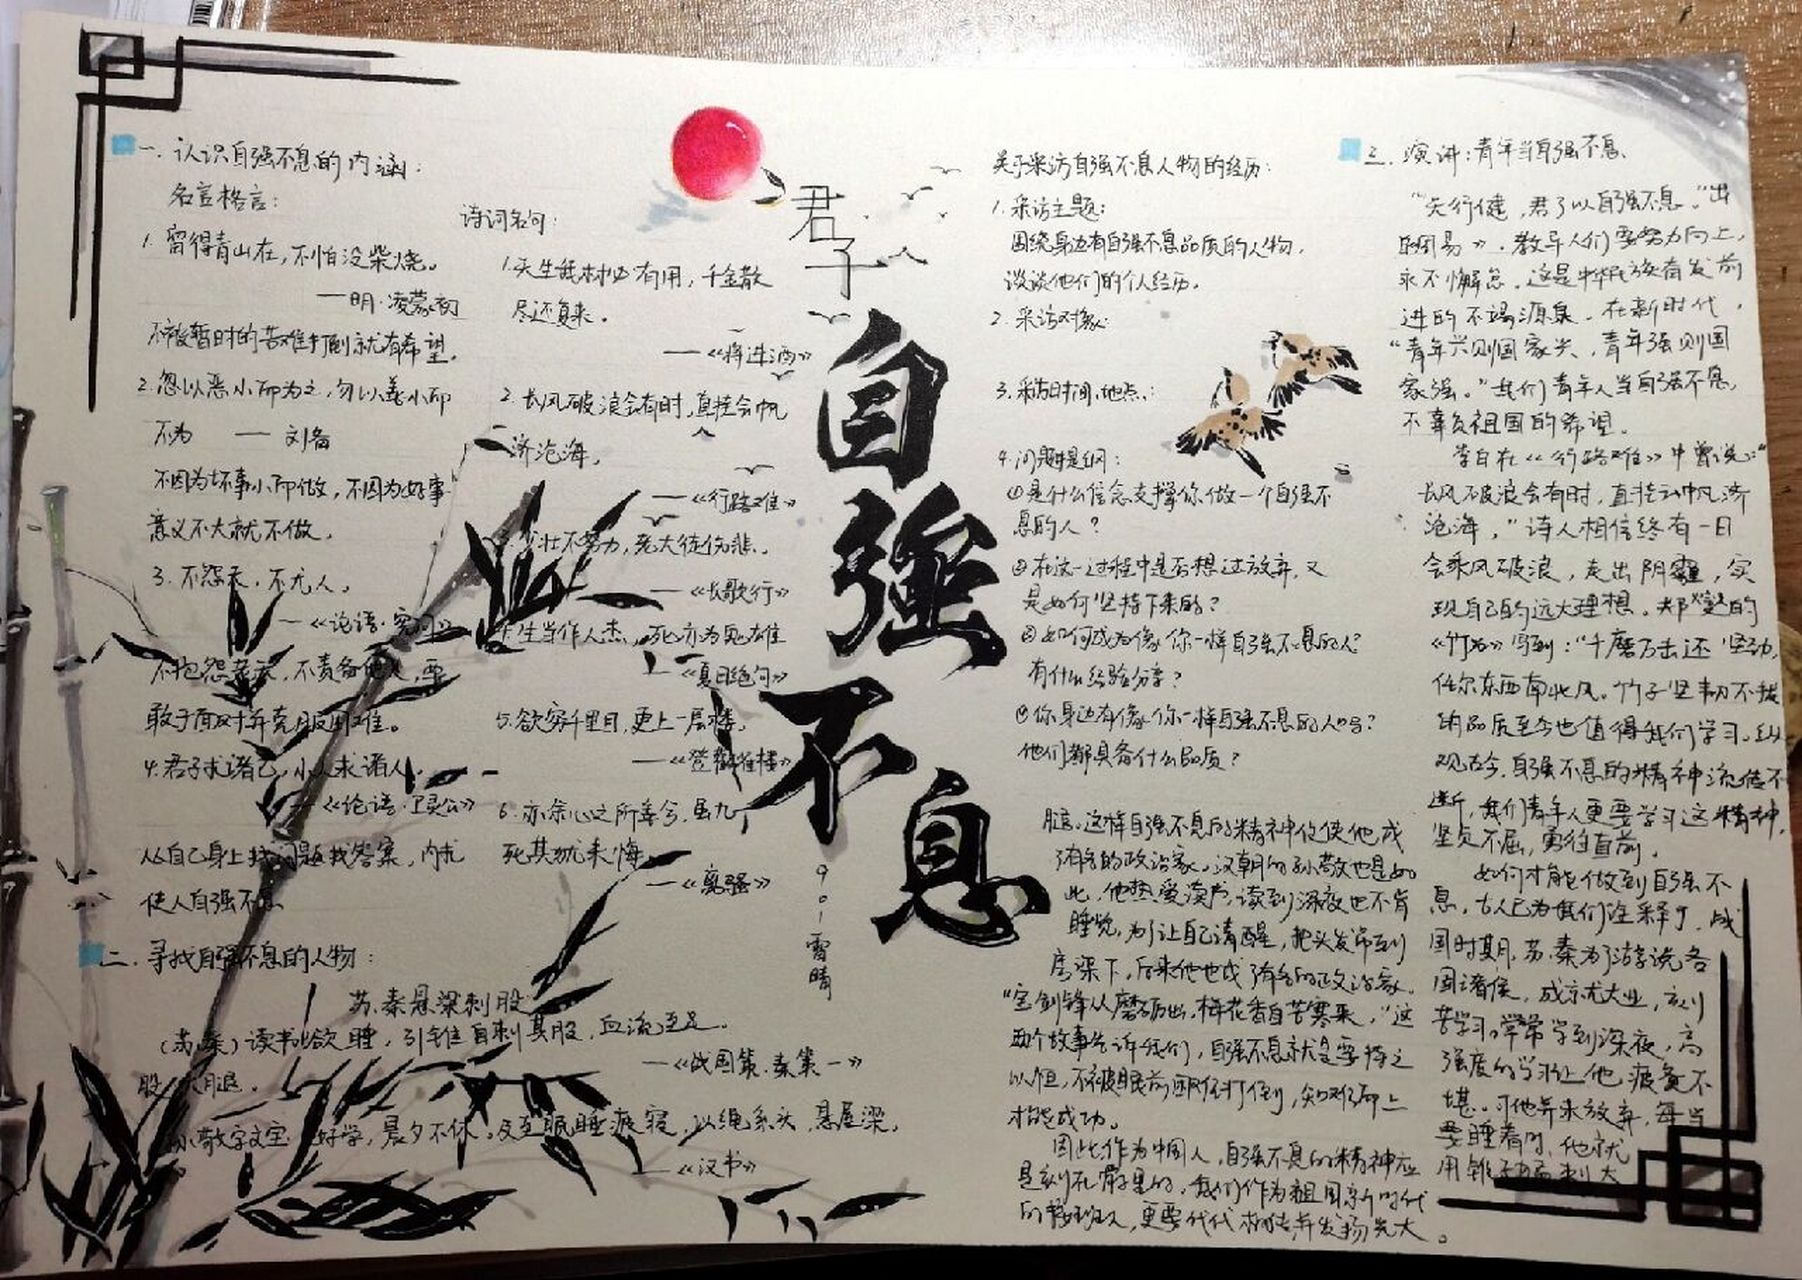 一. 认识自强不息的内涵:
名言格言:
1. 留得青山在,不怕没柴烧。
——明·凌蒙初
不被暂时的苦难打倒就有希望。
2. 忽以恶小而为之,勿以善小而
不为 —— 刘备
不因为坏事小而做,不因为好事
意义不大就不做。
3. 不怨天,不尤人。
——《论语·宪问》
不抱怨老天,不责备他人,要
敢于面对并克服困难。
4. 君子求诸己,小人求诸人。
——《论语·卫灵公》
从自己身上找问题找答案,内求
使人自强不息
二. 寻找自强不息的人物:
苏秦悬梁刺股
(苏秦)读书欲睡,引锥自刺其股,血流至足。
——《战国策·秦策一》
股 大腿。
孙敬字文宝 好学,晨夕不休。及至眠睡疲寝,以绳系头,悬屋梁。
——《汉书》
诗词名句:
1. 天生我材必有用,千金散
尽还复来。
——《将进酒》
2. 长风破浪会有时,直挂云帆
济沧海。
——《行路难》
少壮不努力,老大徒伤悲。
——《长歌行》
生当作人杰,死亦为鬼雄
——《夏日绝句》
5. 欲穷千里目,更上一层楼。
——《登鹳雀楼》
6. 亦余心之所善兮,虽九
死其犹未悔
——《离骚》
君子
自強不息
901 雷晴
关于采访自强不息人物的经历:
1. 采访主题:
围绕身边有自强不息品质的人物,
谈谈他们的个人经历。
2. 采访对象:
3. 采访时间、地点:
4. 问题提纲:
①是什么信念支撑你做一个自强不
息的人?
②在这一过程中是否想过放弃,又
是如何坚持下来的?
③如何成为像你一样自强不息的人?
有什么经验分享?
④你身边有像你一样自强不息的人吗?
他们都具备什么品质?
三. 演讲:青年当自强不息
“天行健,君子以自强不息。”出
自《周易》,教导人们要努力向上,
永不懈怠。这是中华民族有发前
进的不竭源泉。在新时代,
“青年兴则国家兴,青年强则国
家强。”我们青年人当自强不息,
不辜负祖国的希望。
李白在《行路难》中曾说:“
长风破浪会有时,直挂云帆济
沧海,”诗人相信终有一日
会乘风破浪,走出阴霾,实
现自己的远大理想。郑燮的
《竹石》写到:“千磨万击还坚劲,
任尔东西南北风。竹子坚韧不拔
的品质至今也值得我们学习。纵
观古今,自强不息的精神流传不
断,我们青年人更要学习这精神,
坚贞不屈,勇往直前。
如何才能做到自强不
息,古人已为我们诠释了,战
国时期,苏秦为了游说各
国诸侯,成就大业,刻
苦学习。常常学到深夜,高
强度的学习让他疲惫不
堪。可他并未放弃,每当
要睡着时,他就
用锥子猛刺大
腿。这样自强不息的精神促使他成
了有名的政治家。汉朝的孙敬也是如
此,他热爱读书,读到深夜也不肯
睡觉,为了让自己清醒,把头发吊到
房梁下,后来他也成了有名的政治家。
“宝剑锋从磨砺出,梅花香自苦寒来,”这
两个故事告诉我们,自强不息就是要持之
以恒,不被眼前困难打倒,知难而上
才能成功。
因此,作为中国人,自强不息的精神应
是刻在骨子里的,我们作为祖国新时代
的接班人,更要代代相传并发扬光大。